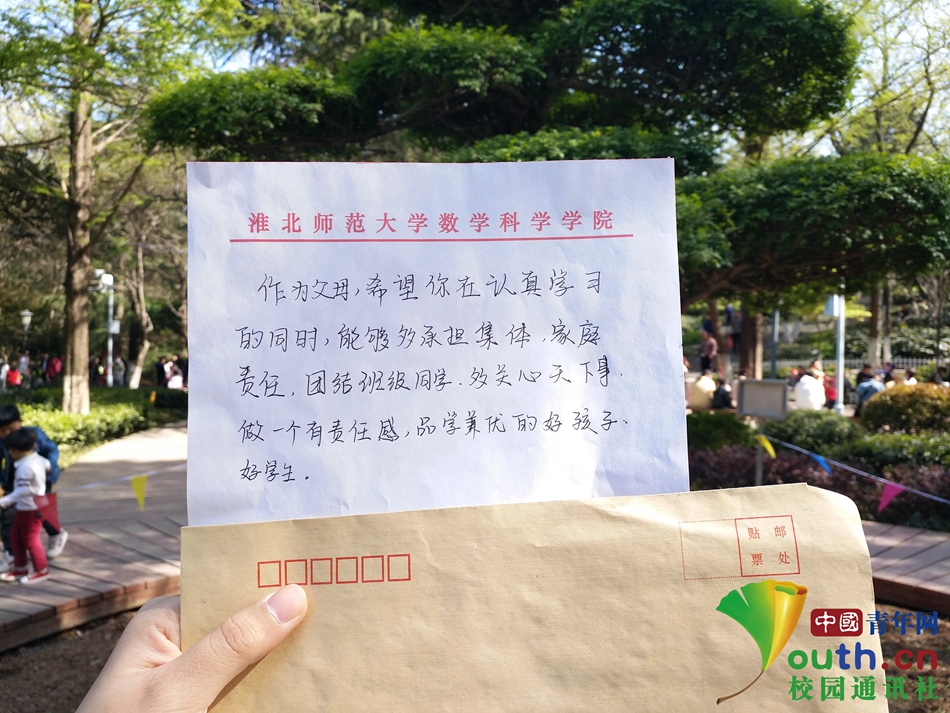 淮北师范大学数学科学学院
作为父母,希望你在认真学习
的同时,能够多承担集体、家庭
责任,团结班级同学、多关心天下事、
做一个有责任感,品学兼优的好孩子、
好学生.
贴 邮
票 处
中国青年网
outh.cn
校园通讯社